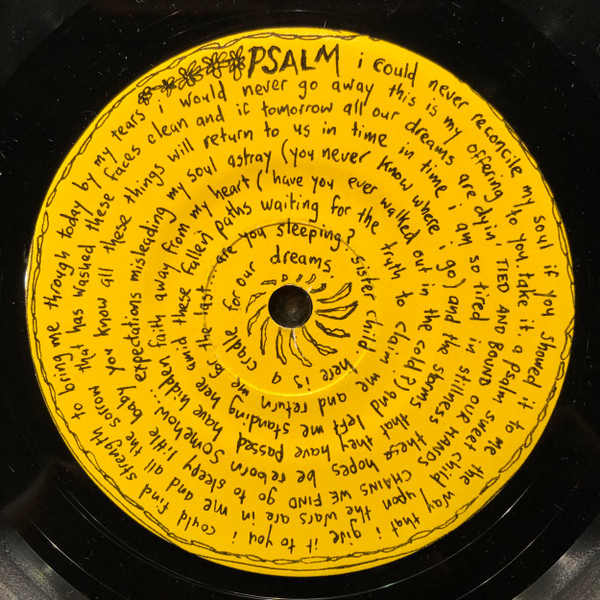 PSALM i could never reconcile my soul if you showed it to me the way that i give it to you i could find strength to bring me through today by my tears
i would never go away this is my offering to you, take it. a psalm sweet child upon the wars are in me and all the sorrow that has washed these faces clean
and if tomorrow all our dreams are dyin' TIED AND BOUND OUR HANDS these CHAINS WE FIND go to sleepy little baby you know all these things will return
to us in time in time i am so tired in stillness hopes be reborn somehow... expectations misleading my soul astray
(you never know where i go) and the storms that they have passed have hidden faith away from my heart
( have you ever walked out in the cold?) and left me standing here amid these fallen paths
waiting for the truth to claim me and return me for the last
are you sleeping? sister child here is a cradle for our dreams